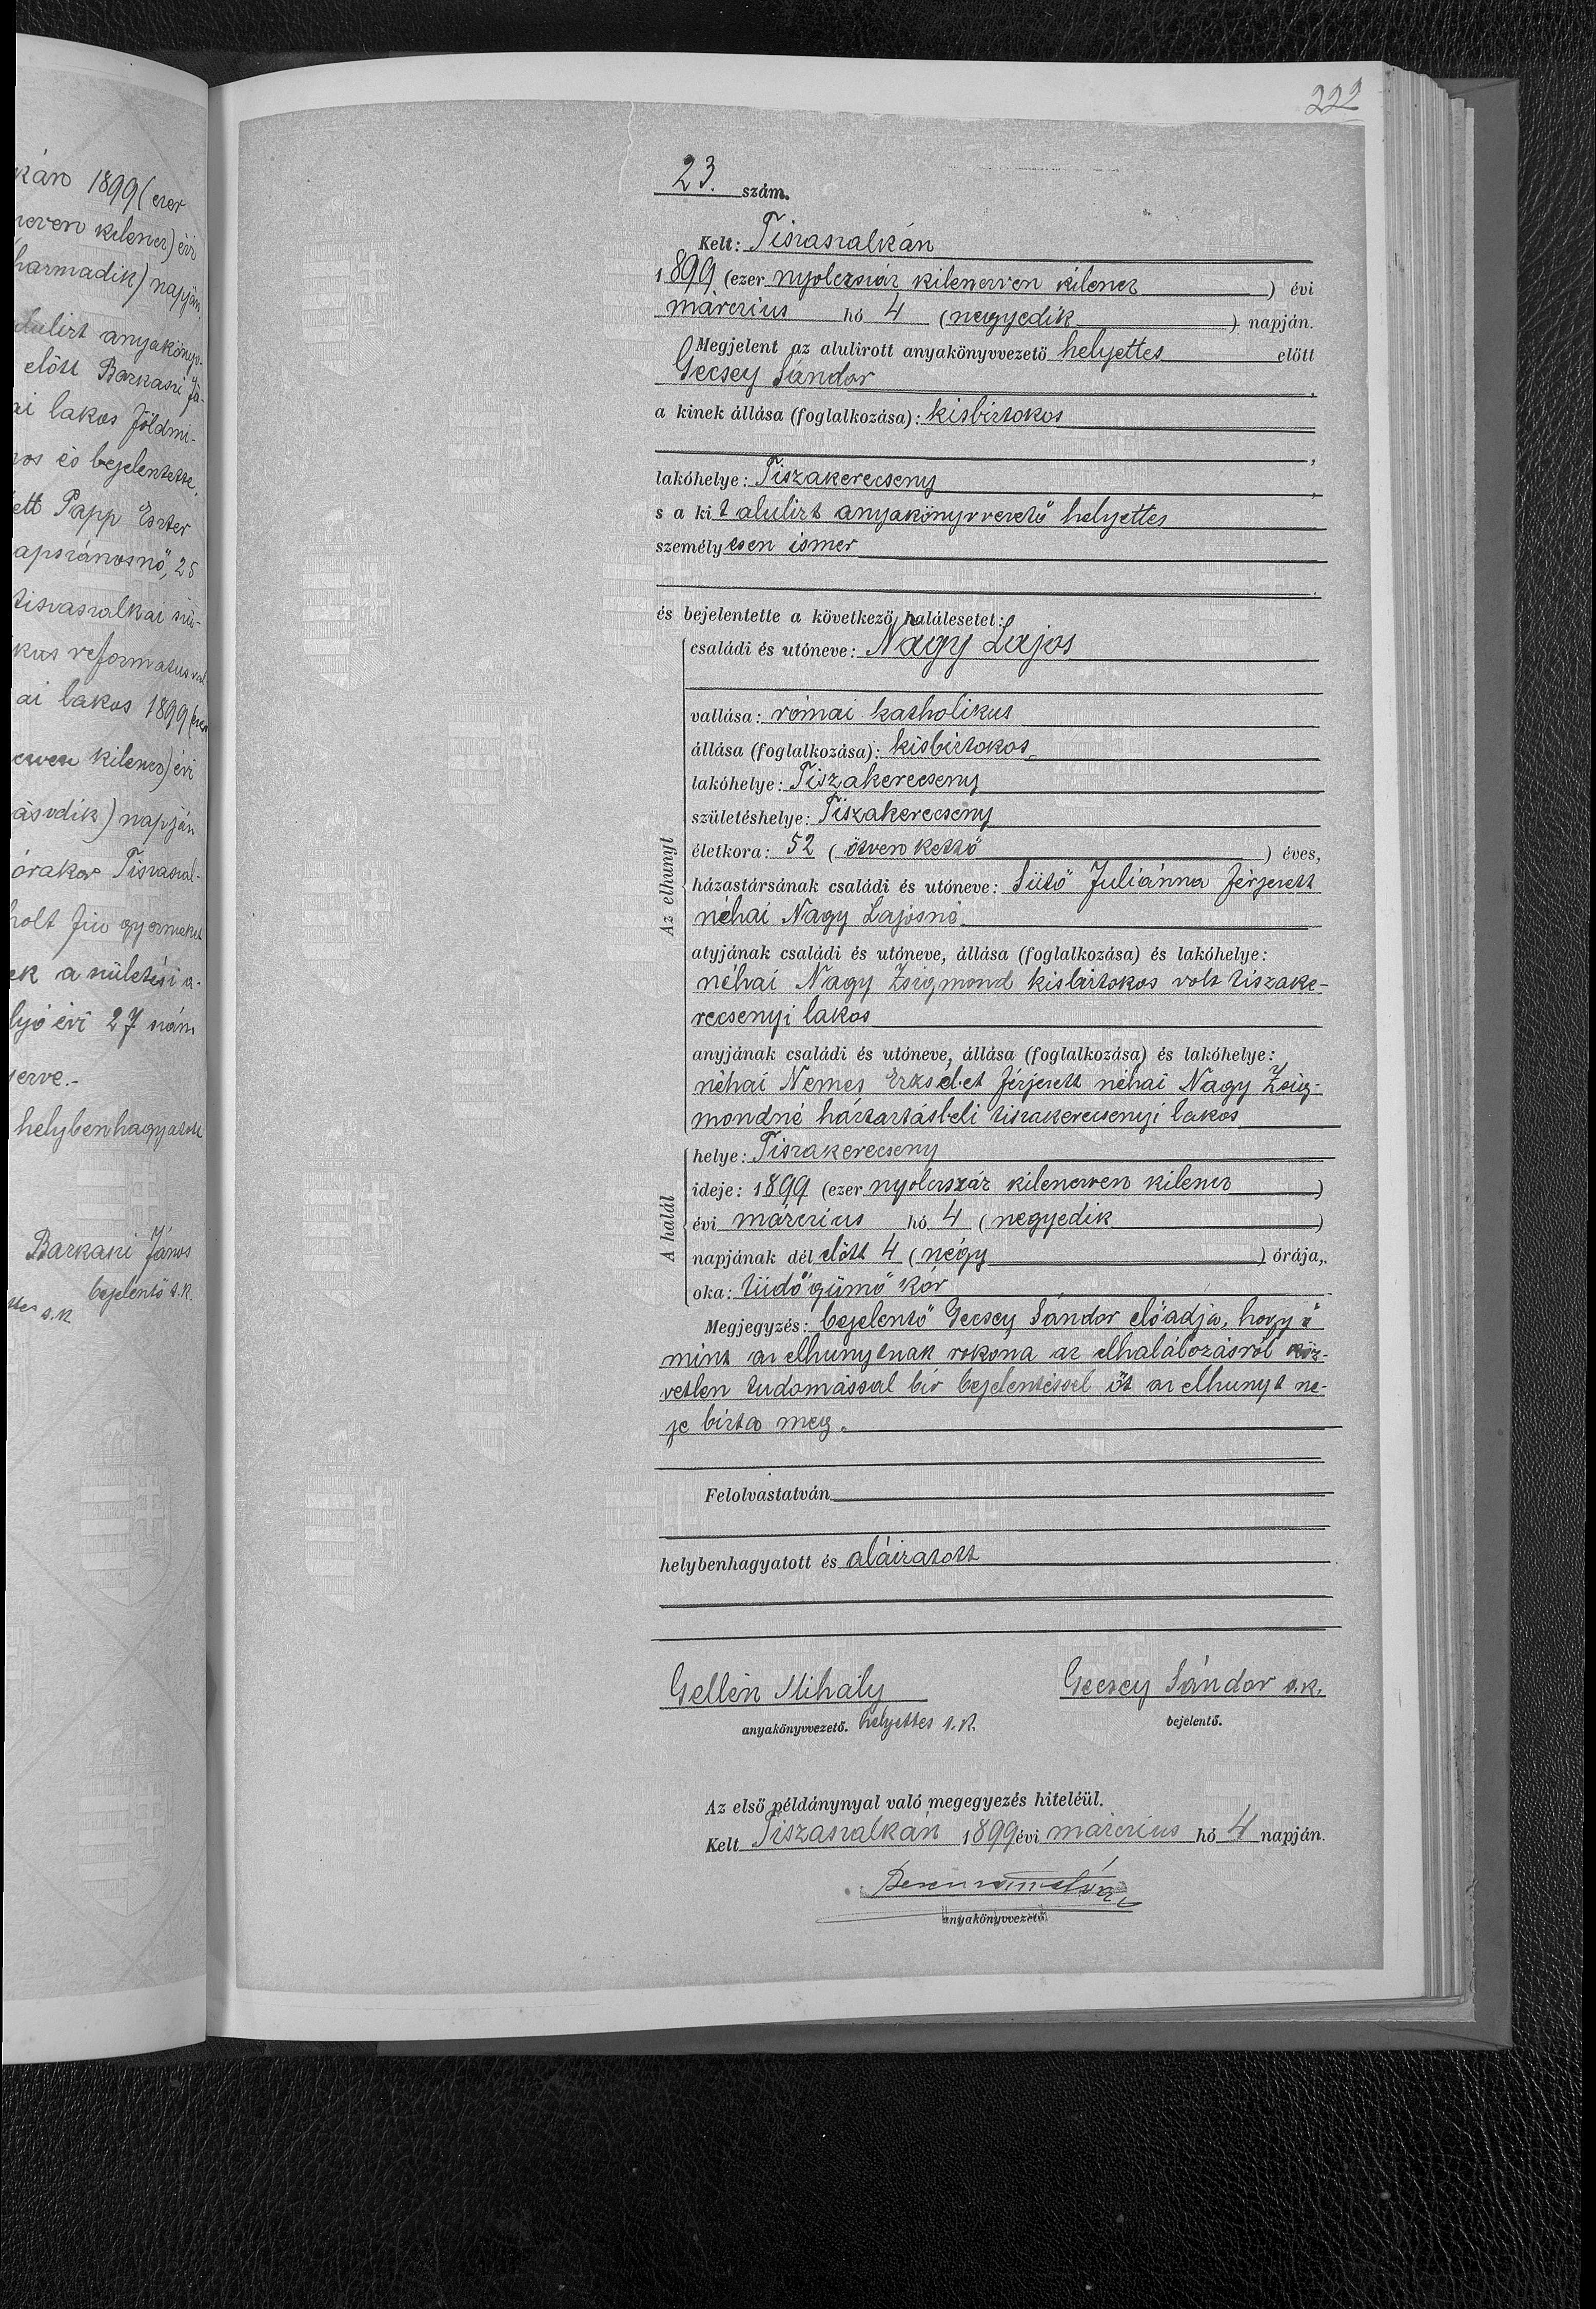 kán 1899 (ezer
kilencz) évi
harmadik) napján.
alulirt anyakönyv-
előtt Barkaszi Já-
ai lakos földmi-
és bejelentette,
ett Papp Eszter
napszámosnő, 25
tiszaszalkai szü-
kus reformatus
ai lakos 1899 (ezer
kilencz) évi
ásodik) napján
órakor Tiszaszal-
holt fiu gyermeket
ek a születési a-
lyó évi 27 szám
helybenhagyatott
Barkaszi János
bejelentő s.k.
s.k
222
23. szám.
Kelt: Tiszaszalkán
1899 (ezer nyolczszáz kilenczven kilencz) évi
márczius hó 4 (negyedik) napján.
Megjelent az alulirott anyakönyvvezető helyettes előtt
Gecsey Sándor,
a kinek állása (foglalkozása): kisbirtokos
,
lakóhelye: Tiszakerecseny,
s a kit alulirt anyakönyvvezető helyettes
személyesen ismer
.
és bejelentette a következő halálesetet:
Az elhunyt
családi és utóneve: Nagy Lajos
vallása: római katholikus
állása (foglalkozása): kisbirtokos
lakóhelye: Tiszakerecseny
születéshelye: Tiszakerecseny
életkora: 52 (ötven kettő) éves,
házastársának családi és utóneve: Sütő Juliánna férjezett
néhai Nagy Lajosné
atyjának családi és utóneve, állása (foglalkozása) és lakóhelye:
néhai Nagy Zsigmond kisbirtokos volt tiszake-
recsenyi lakos
anyjának családi és utóneve, állása (foglalkozása) és lakóhelye:
néhai Nemes Erzsébet férjezett néhai Nagy Zsig-
mondné háztartásbeli tiszakerecsenyi lakos
A halál
helye: Tiszakerecseny
ideje: 1899 (ezer nyolczszáz kilenczven kilencz)
évi márczius hó 4 (negyedik)
napjának dél előtt 4 (négy) órája,
oka: tüdő gümő kór
Megjegyzés: bejelentő Gecsey Sándor előadja, hogy ő
mint az elhunytnak rokona az elhalálozásról köz-
vetlen tudomással bir bejelentéssel őt az elhunyt ne-
je bizta meg.
Felolvastatván
helybenhagyatott és aláiratott
Gellén Mihály
anyakönyvvezető. helyettes s.k.
Gecsey Sándor s.k.
bejelentő.
Az első példánynyal való megegyezés hiteléül.
Kelt Tiszaszalkán 1899 évi márczius hó 4 napján.
anyakönyvvezető